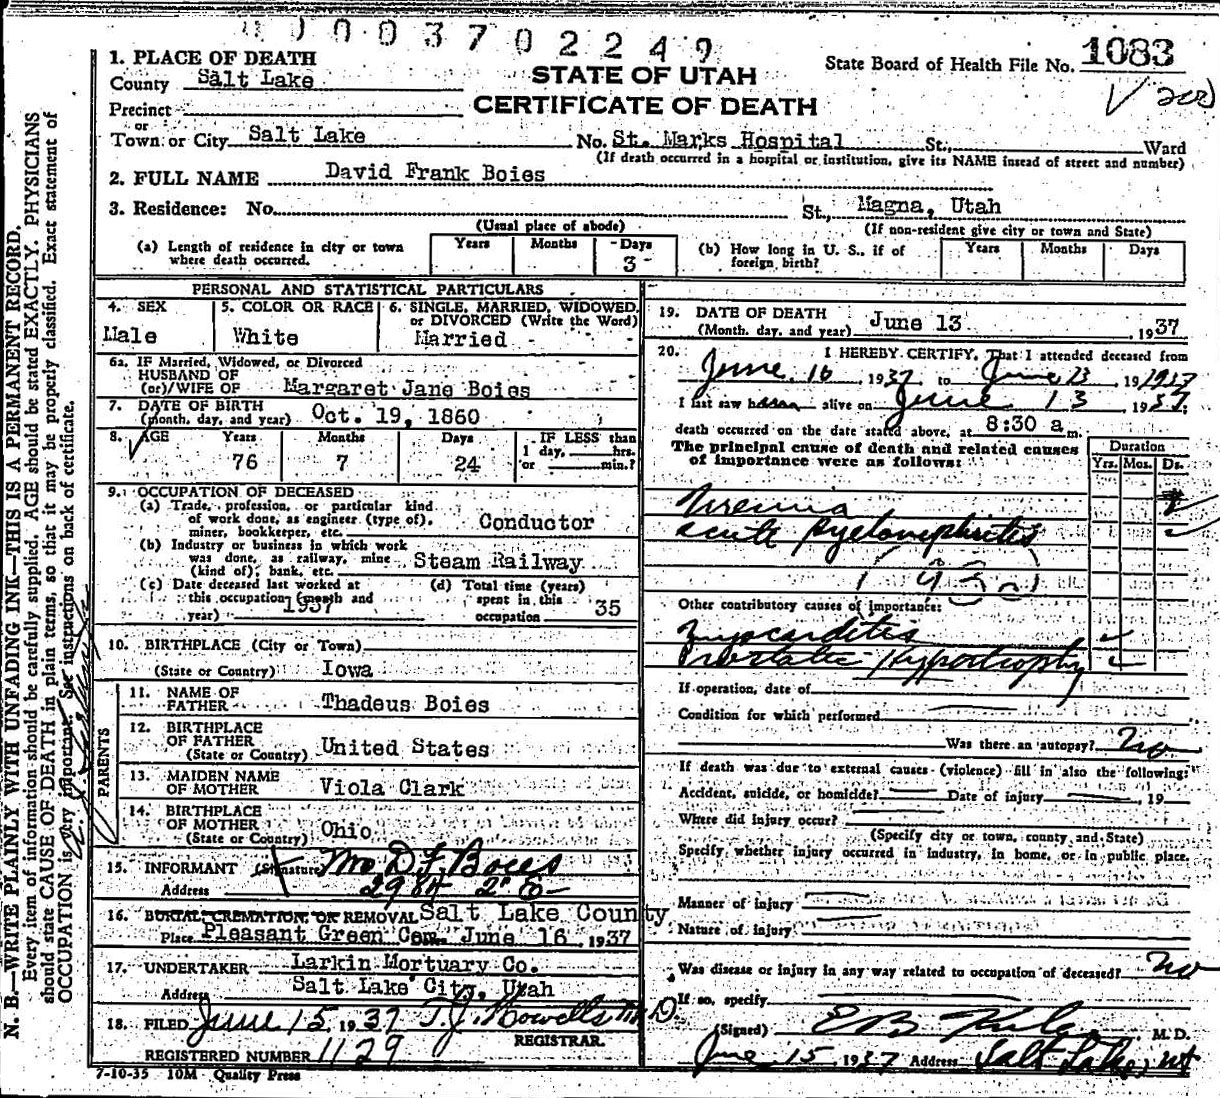 0003702249
1083
1. PLACE OF DEATH
County Salt Lake
STATE OF UTAH
CERTIFICATE OF DEATH
State Board of Health File No.
Precinct
or
Town or City Salt Lake No. St. Marks Hospital St., Ward
(If death occurred in a hospital or institution, give its NAME instead of street and number)
2. FULL NAME David Frank Boies
3. Residence: No. St., Magna, Utah
(Usual place of abode) (If non-resident give city or town and State)
(a) Length of residence in city or town where death occurred. Years Months Days 3
(b) How long in U. S., if of foreign birth? Years Months Days
PERSONAL AND STATISTICAL PARTICULARS
4. SEX Male
5. COLOR OR RACE White
6. SINGLE, MARRIED, WIDOWED, or DIVORCED (Write the Word) Married
6a. IF Married, Widowed, or Divorced
HUSBAND OF
(or)/WIFE OF Margaret Jane Boies
7. DATE OF BIRTH
(month, day, and year) Oct. 19, 1860
8. AGE Years 76 Months 7 Days 24 IF LESS than 1 day, hrs. or min.?
9. OCCUPATION OF DECEASED
(a) Trade, profession, or particular kind
of work done, as engineer (type of),
miner, bookkeeper, etc. Conductor
(b) Industry or business in which work
was done, as railway, mine
(kind of), bank, etc. Steam Railway
(c) Date deceased last worked at
this occupation (month and
year) 1937
(d) Total time (years)
spent in this
occupation 35
10. BIRTHPLACE (City or Town)
(State or Country) Iowa
PARENTS
11. NAME OF
FATHER Thadeus Boies
12. BIRTHPLACE
OF FATHER
(State or Country) United States
13. MAIDEN NAME
OF MOTHER Viola Clark
14. BIRTHPLACE
OF MOTHER
(State or Country) Ohio
15. INFORMANT (Signature) D F Boies
Address 2984 2 E
16. BURIAL, CREMATION, OR REMOVAL Salt Lake County
Place Pleasant Green Cem. June 16, 1937
17. UNDERTAKER Larkin Mortuary Co.
Address Salt Lake City, Utah
18. FILED June 15, 1937 T.J. Howells M.D.
REGISTRAR.
REGISTERED NUMBER 1129
7-10-35 10M Quality Press
19. DATE OF DEATH
(Month, day, and year) June 13, 1937
20. I HEREBY CERTIFY, That I attended deceased from
June 10 1937 to June 13, 1937
I last saw h alive on June 13 1937;
death occurred on the date stated above, at 8:30 a.m.
The principal cause of death and related causes
of importance were as follows:
Duration
Yrs. Mos. Ds.
Uremia
acute Pyelonephritis
Other contributory causes of importance:
Myocarditis
Prostatic Hypertrophy
If operation, date of
Condition for which performed
Was there an autopsy? No
If death was due to external causes (violence) fill in also the following:
Accident, suicide, or homicide? Date of injury, 19
Where did injury occur?
(Specify city or town, county, and State)
Specify whether injury occurred in industry, in home, or in public place.
Manner of injury
Nature of injury
Was disease or injury in any way related to occupation of deceased? No
If so, specify
(Signed) M. D.
June 15 1937 Address Salt Lake, Ut
N. B.—WRITE PLAINLY WITH UNFADING INK—THIS IS A PERMANENT RECORD.
Every item of information should be carefully supplied. AGE should be stated EXACTLY. PHYSICIANS
should state CAUSE OF DEATH in plain terms, so that it may be properly classified. Exact statement of
OCCUPATION is very important. See instructions on back of certificate.